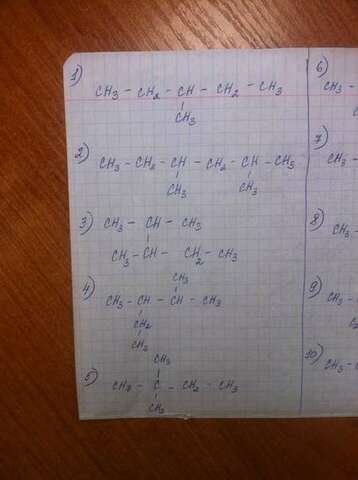 1)
CH₃ – CH₂ – CH – CH₂ – CH₃
CH₃
2)
CH₃ – CH₂ – CH – CH₂ – CH – CH₃
CH₃ CH₃
3) CH₃ – CH – CH₃
CH₃ – CH – CH₂ – CH₃
4)
CH₃
CH₃ – CH – CH – CH₃
CH₂
CH₃
5)
CH₃
CH₃ – C – CH₂ – CH₃
CH₃
6)
CH₃ –
7)
CH₃
8)
CH₃
9)
CH₃ –
10)
CH₃ –